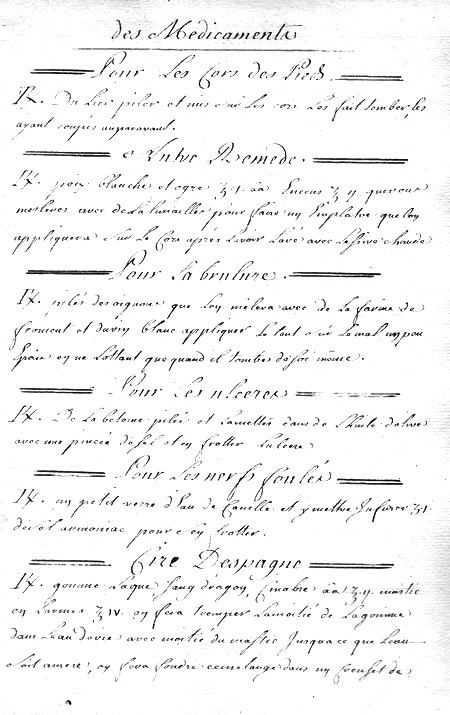 des Médicaments
Pour Les Cors des Pieds
℞. Du Lier piler et mis sur Les cors Les fait tomber, les
ayant coupés auparavant.
Autre Remede.
℞. poix blanche et ʒ.1. āā Encens ʒ ij. que vous
meslerés avec de La pour faire un Emplatre que l'on
appliquera sur Le Cors après L'avoir Lavé avec Lessive chaude
Pour La brulure
℞. pilés des oignons que L'on mêlera avec de La farine de
froment et du vin blanc appliquer Le tout sur Le mal un peu
épais en ne L'ottant que quand il tombera de soi même.
Pour Les ulceres
℞. De La betoine pilée et La mettés dans de L'huile d'olive
avec une pincée de sel et en frotter L'ulcere
Pour Les nerfs foulés
℞. un petit verre d'Eau de Canelle et y mettre Infuser ʒ1.
de sel armoniac pour s'en frotter.
Cire Despagne
℞. gomme Laque, sang dragon, Cinabre āā ʒ.ij. mastic
en Larmes ʒ IV. on fera tremper La moitié de La gomme
dans L'eau de vie avec moitié du mastic Jusqua ce que L'eau
soit amere, on fera fondre ce mélange dans un Creuset de